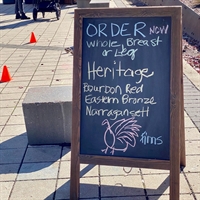 ORDER NOW
whole Breast
or Leg
Heritage
Bourbon Red
Eastern Bronze
Narragansett